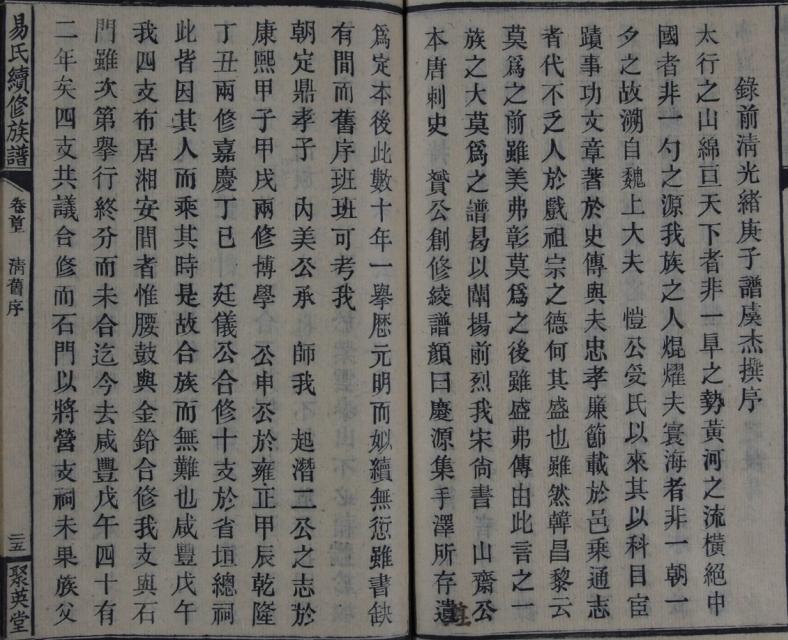 錄前清光緒庚子譜虞杰撰序
太行之山綿亘天下者非一阜之勢黃河之流橫絕中
國者非一勺之源我族之人焜燿夫寰海者非一朝一
夕之故溯自魏上大夫 愷公受氏以來其以科目宦
蹟事功文章著於史傳與夫忠孝廉節載於邑乘通志
者代不乏人於戲祖宗之德何其盛也雖然韓昌黎云
莫爲之前雖美弗彰莫爲之後雖盛弗傳由此言之一
族之大莫爲之譜曷以闡揚前烈我宋尙書 山齋公
本唐刺史 贇公創修綾譜顏曰慶源集手澤所存遺
爲定本後此數十年一舉歷元明而姒續無愆雖書缺
有間而舊序班班可考我
朝定鼎孝子 內美公承 師我 起潛二公之志於
康熙甲子甲戌兩修博學 公申公於雍正甲辰乾隆
丁丑兩修嘉慶丁巳 廷儀公合修十支於省垣總祠
此皆因其人而乘其時是故合族而無難也咸豐戊午
我四支布居湘安間者惟腰鼓與金鈴合修我支與石
門雖次第舉行終分而未合迄今去咸豐戊午四十有
二年矣四支共議合修而石門以將營支祠未果族父
易氏續修族譜
卷首
清舊序
三五
聚英堂